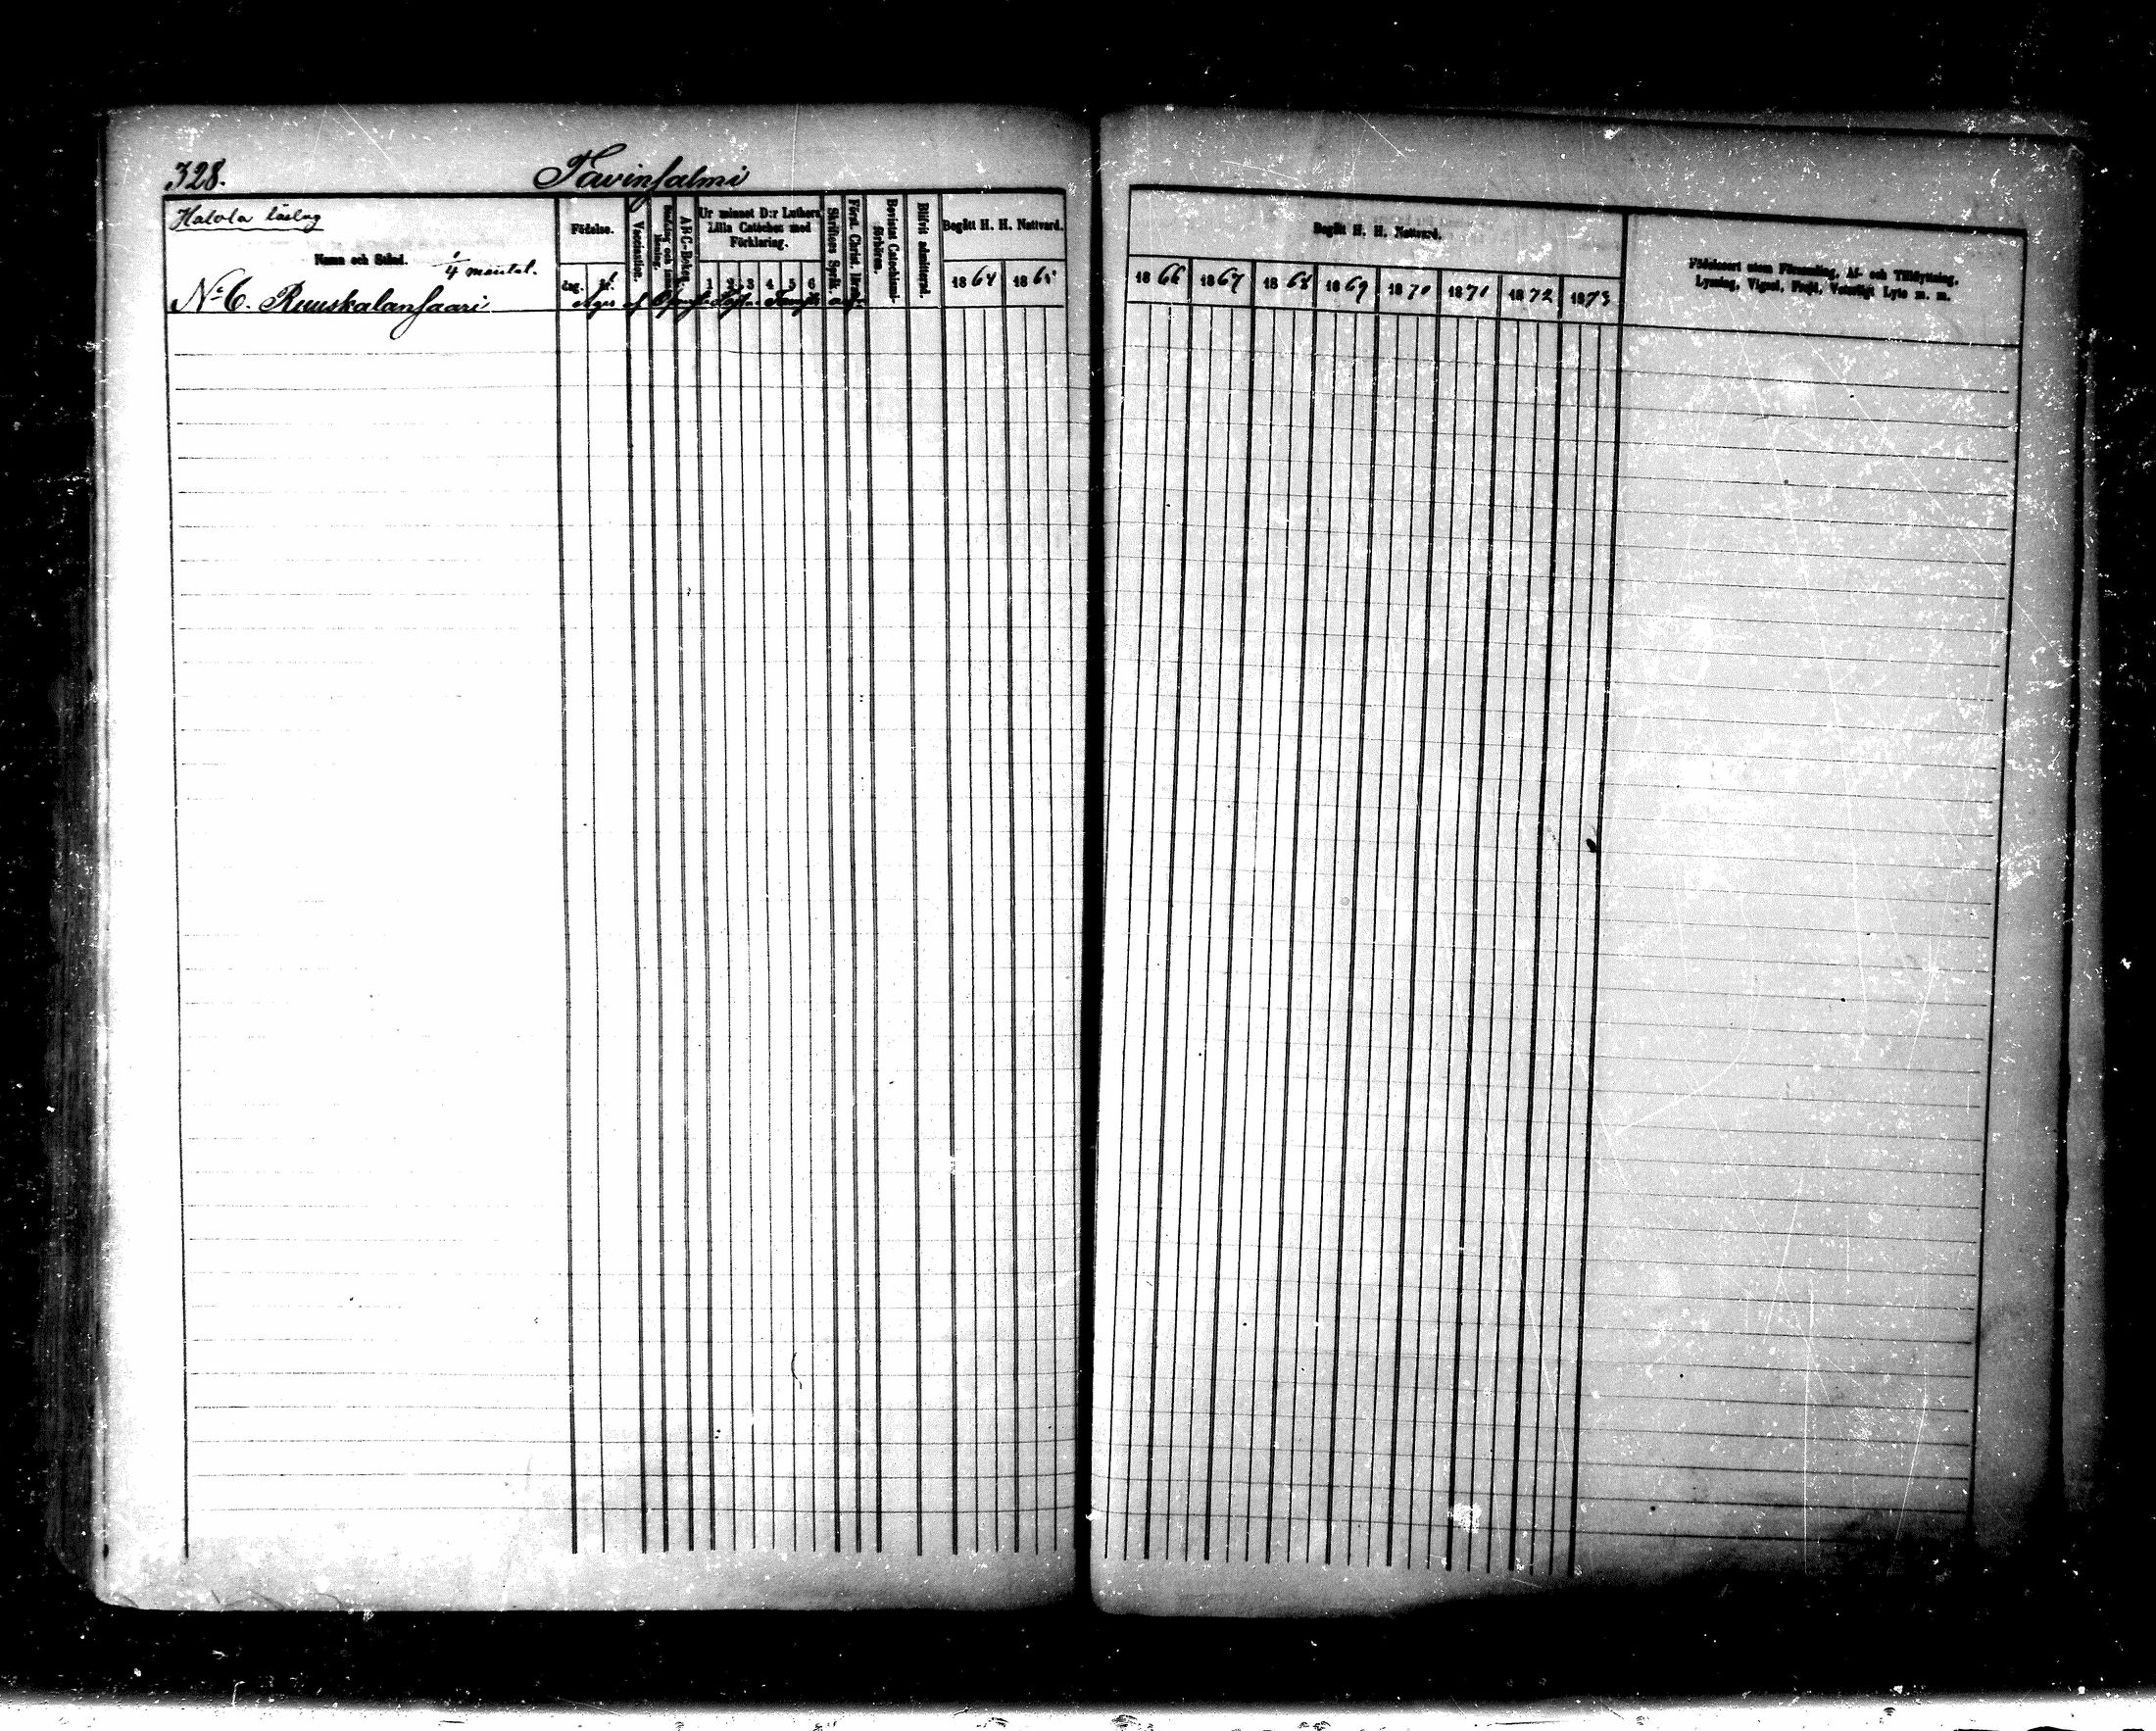 328. Tavinsalmi
Halola läslag
Namn och Stånd. 1/4 mantal.
N:o 6. Ruuskalansaari
Födelse.
dag. år.
Vaccination.
ABC-Boken.
Ur minnet D:r Luthers
Lilla Cateches med
Förklaring.
1 2 3 4 5 6
Skriftens Språk.
Först. Christ. läran.
Bevistat Catechismi-
förhören.
Blifvit admitterad.
Begått H. H. Nattvard.
1864 1865
Äges af
Begått H. H. Nattvard.
1866 1867 1868 1869 1870 1871 1872 1873
Födelseort utom Församling, Af- och Tillflyttning,
Lysning, Vigsel, Frejd, Naturligt Lyte m. m.